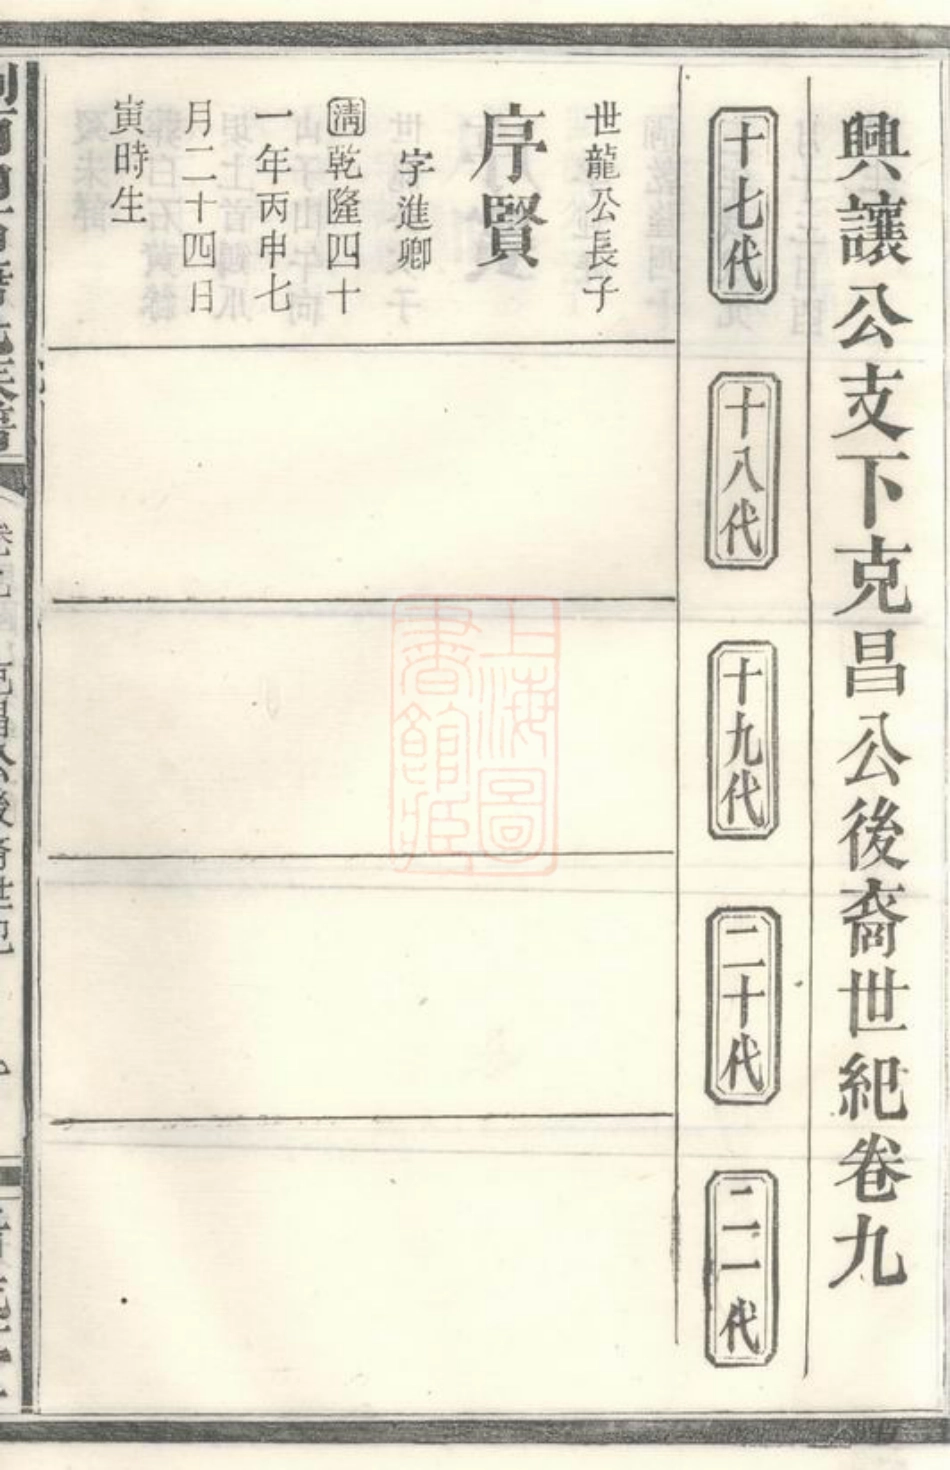 興讓公支下克昌公後裔世紀卷九
十七代
十八代
十九代
二十代
二一代
世龍公長子
序賢
字進卿
清乾隆四十
一年丙申七
月二十四日
寅時生
上海圖
書館藏